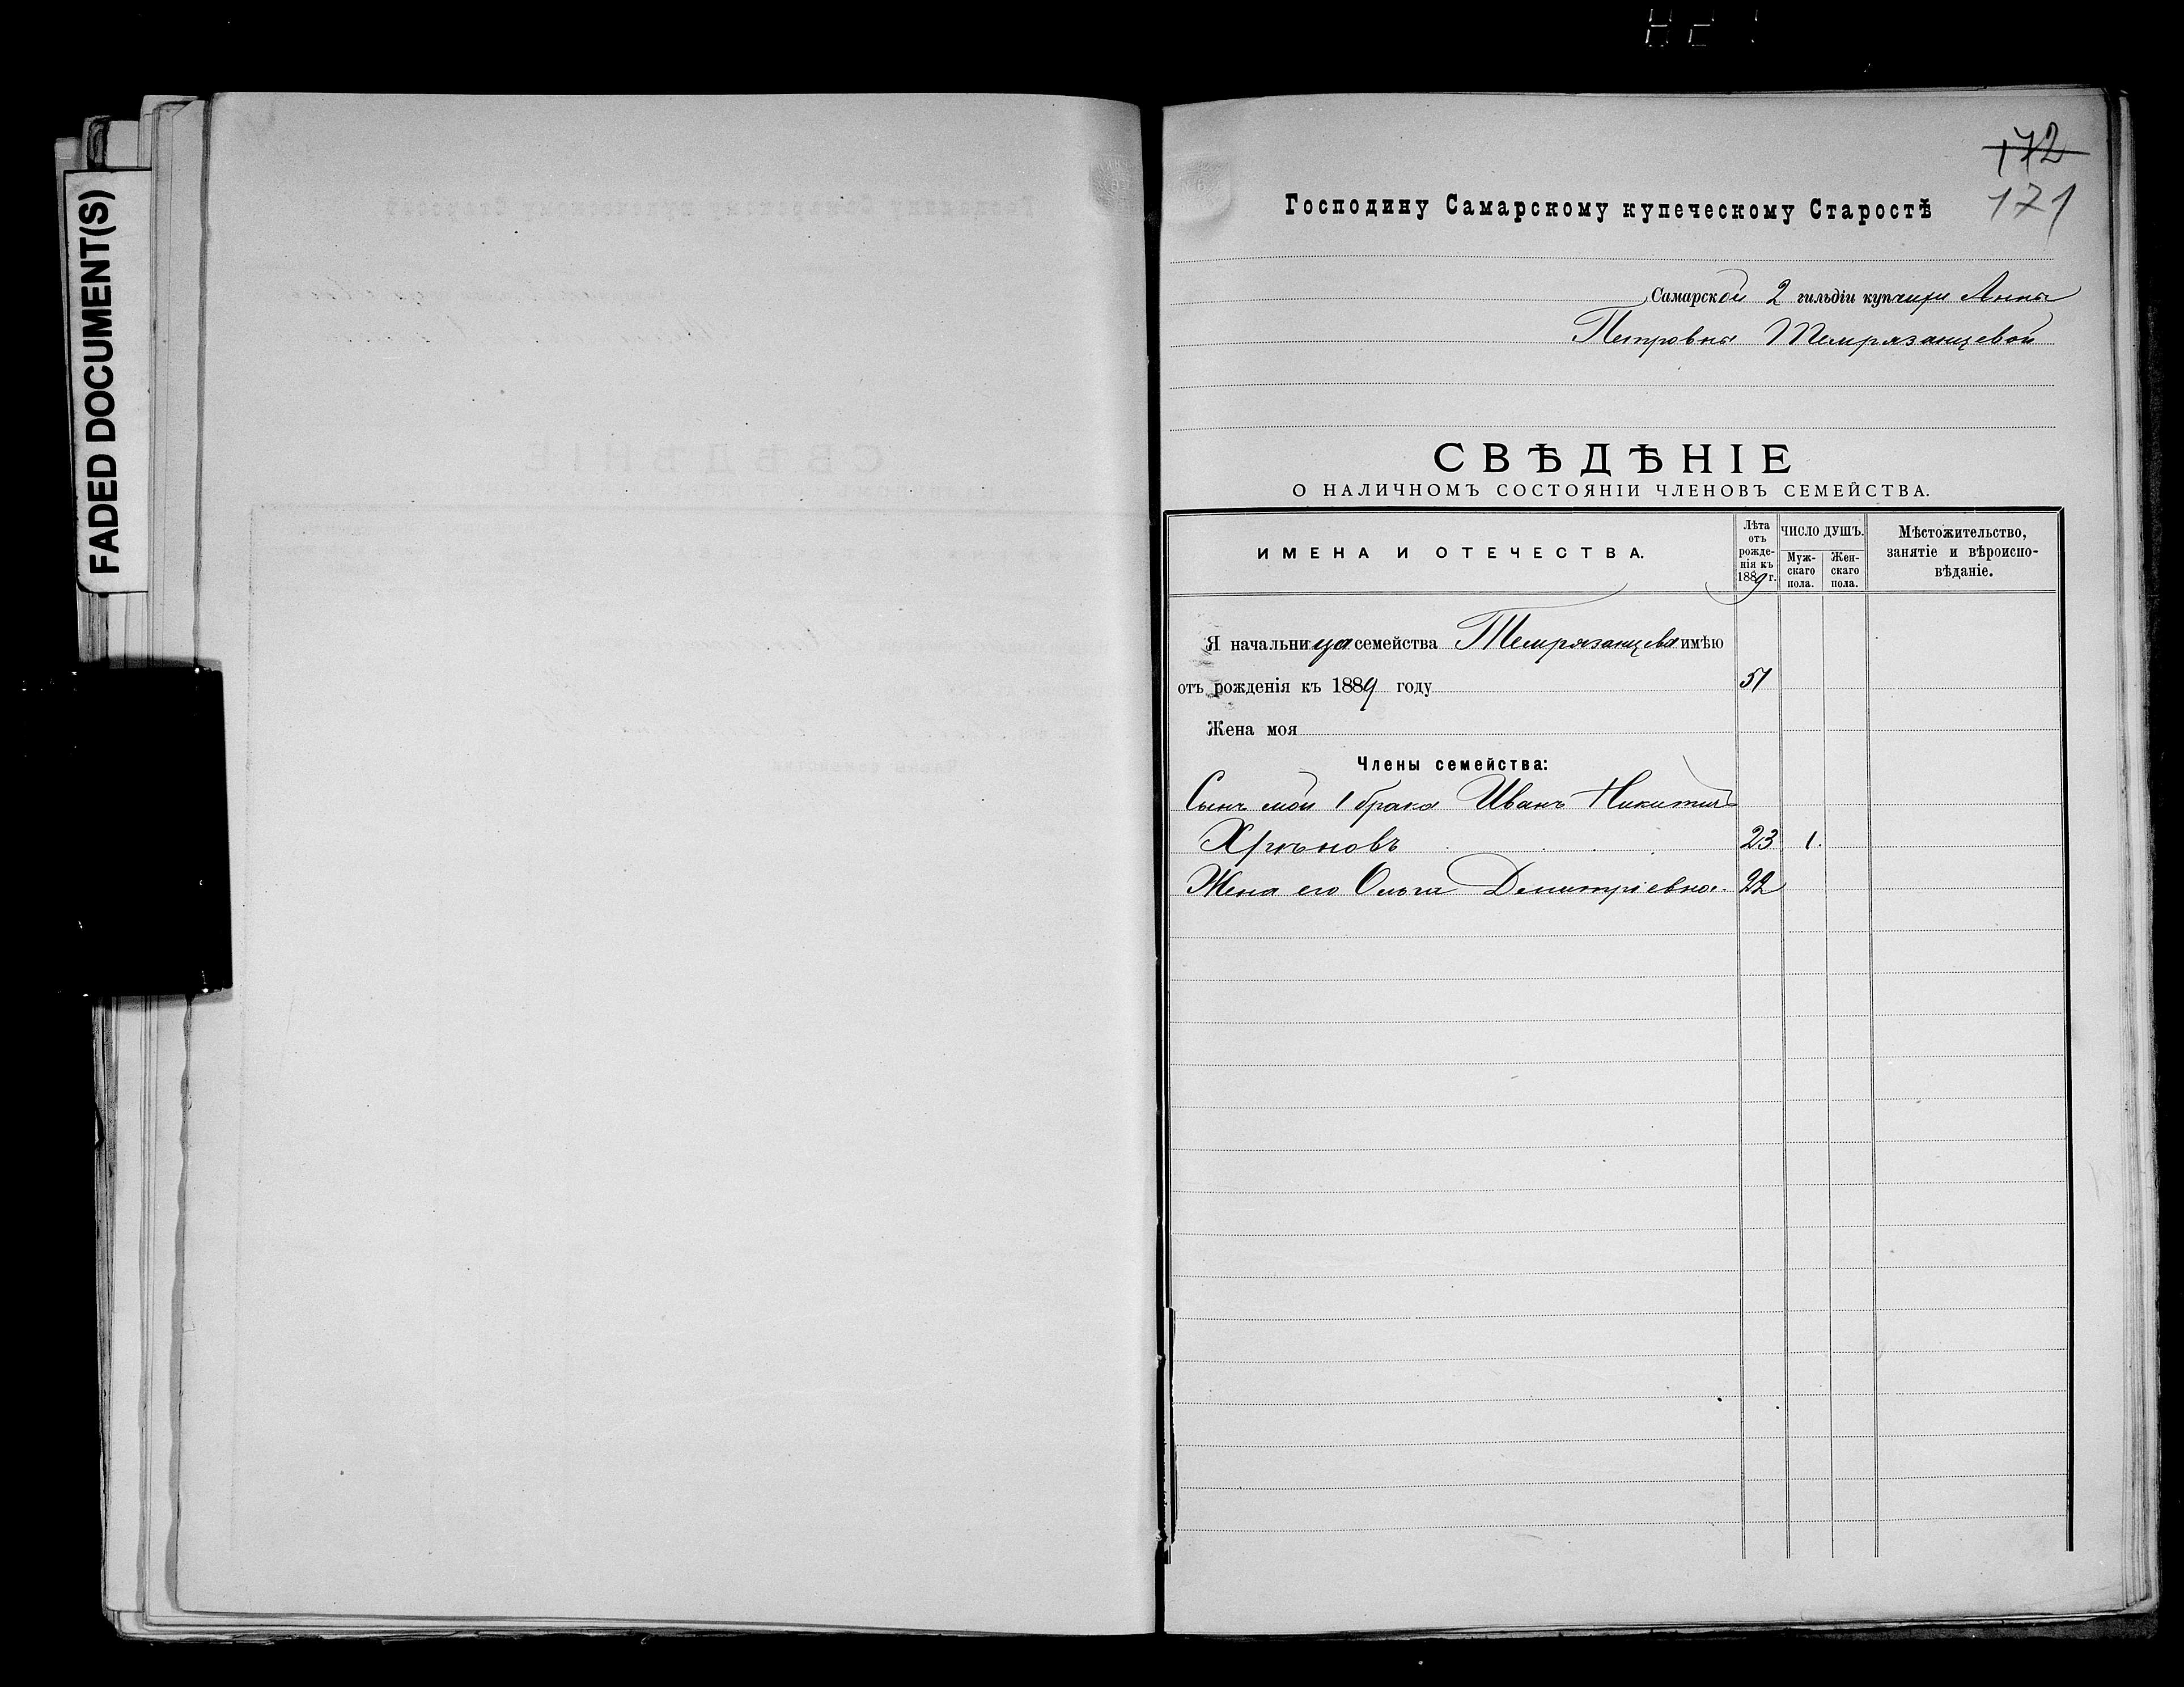 FADED DOCUMENT(S)
172
171
Господину Самарскому купеческому Старостѣ
Самарской 2 гильдіи купчихи Анны
Петровны Темрязанцевой
СВѢДѢНІЕ
О НАЛИЧНОМЪ СОСТОЯНІИ ЧЛЕНОВЪ СЕМЕЙСТВА.
ИМЕНА И ОТЕЧЕСТВА.
Лѣта
отъ
рожде-
нія къ
1889 г.
ЧИСЛО ДУШЪ.
Муж-
скаго
пола.
Жен-
скаго
пола.
Мѣстожительство,
занятіе и вѣроиспо-
вѣданіе.
Я начальница семейства Темрязанцева имѣю
отъ рожденія къ 1889 году 51
Жена моя
Члены семейства:
Сынъ мой 1 брака Иванъ Никитинъ
Хрѣновъ 23 1.
Жена его Ольга Демитріевна 22